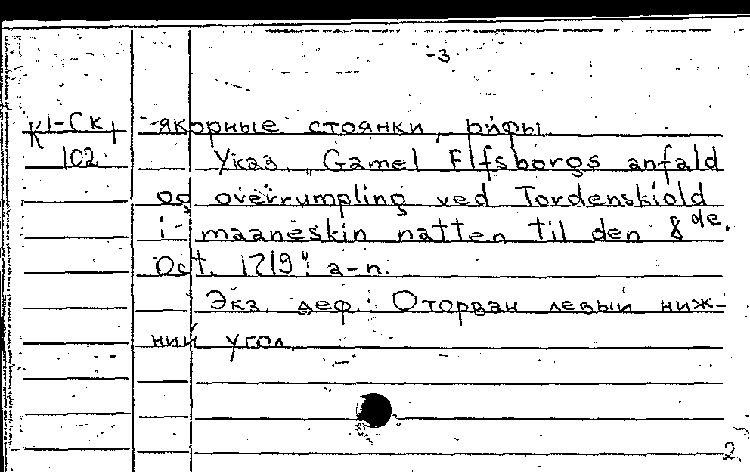 -3
К1-Ск1 -якорные стоянки, рифы.
102 Указ. "Gamel Elfsborgs anfald
og overrumpling ved Tordenskiold
i maaneskin natten til den 8de.
Oct. 1719": а-п.
Экз. деф.: Оторван левый ниж-
ний угол.
2.